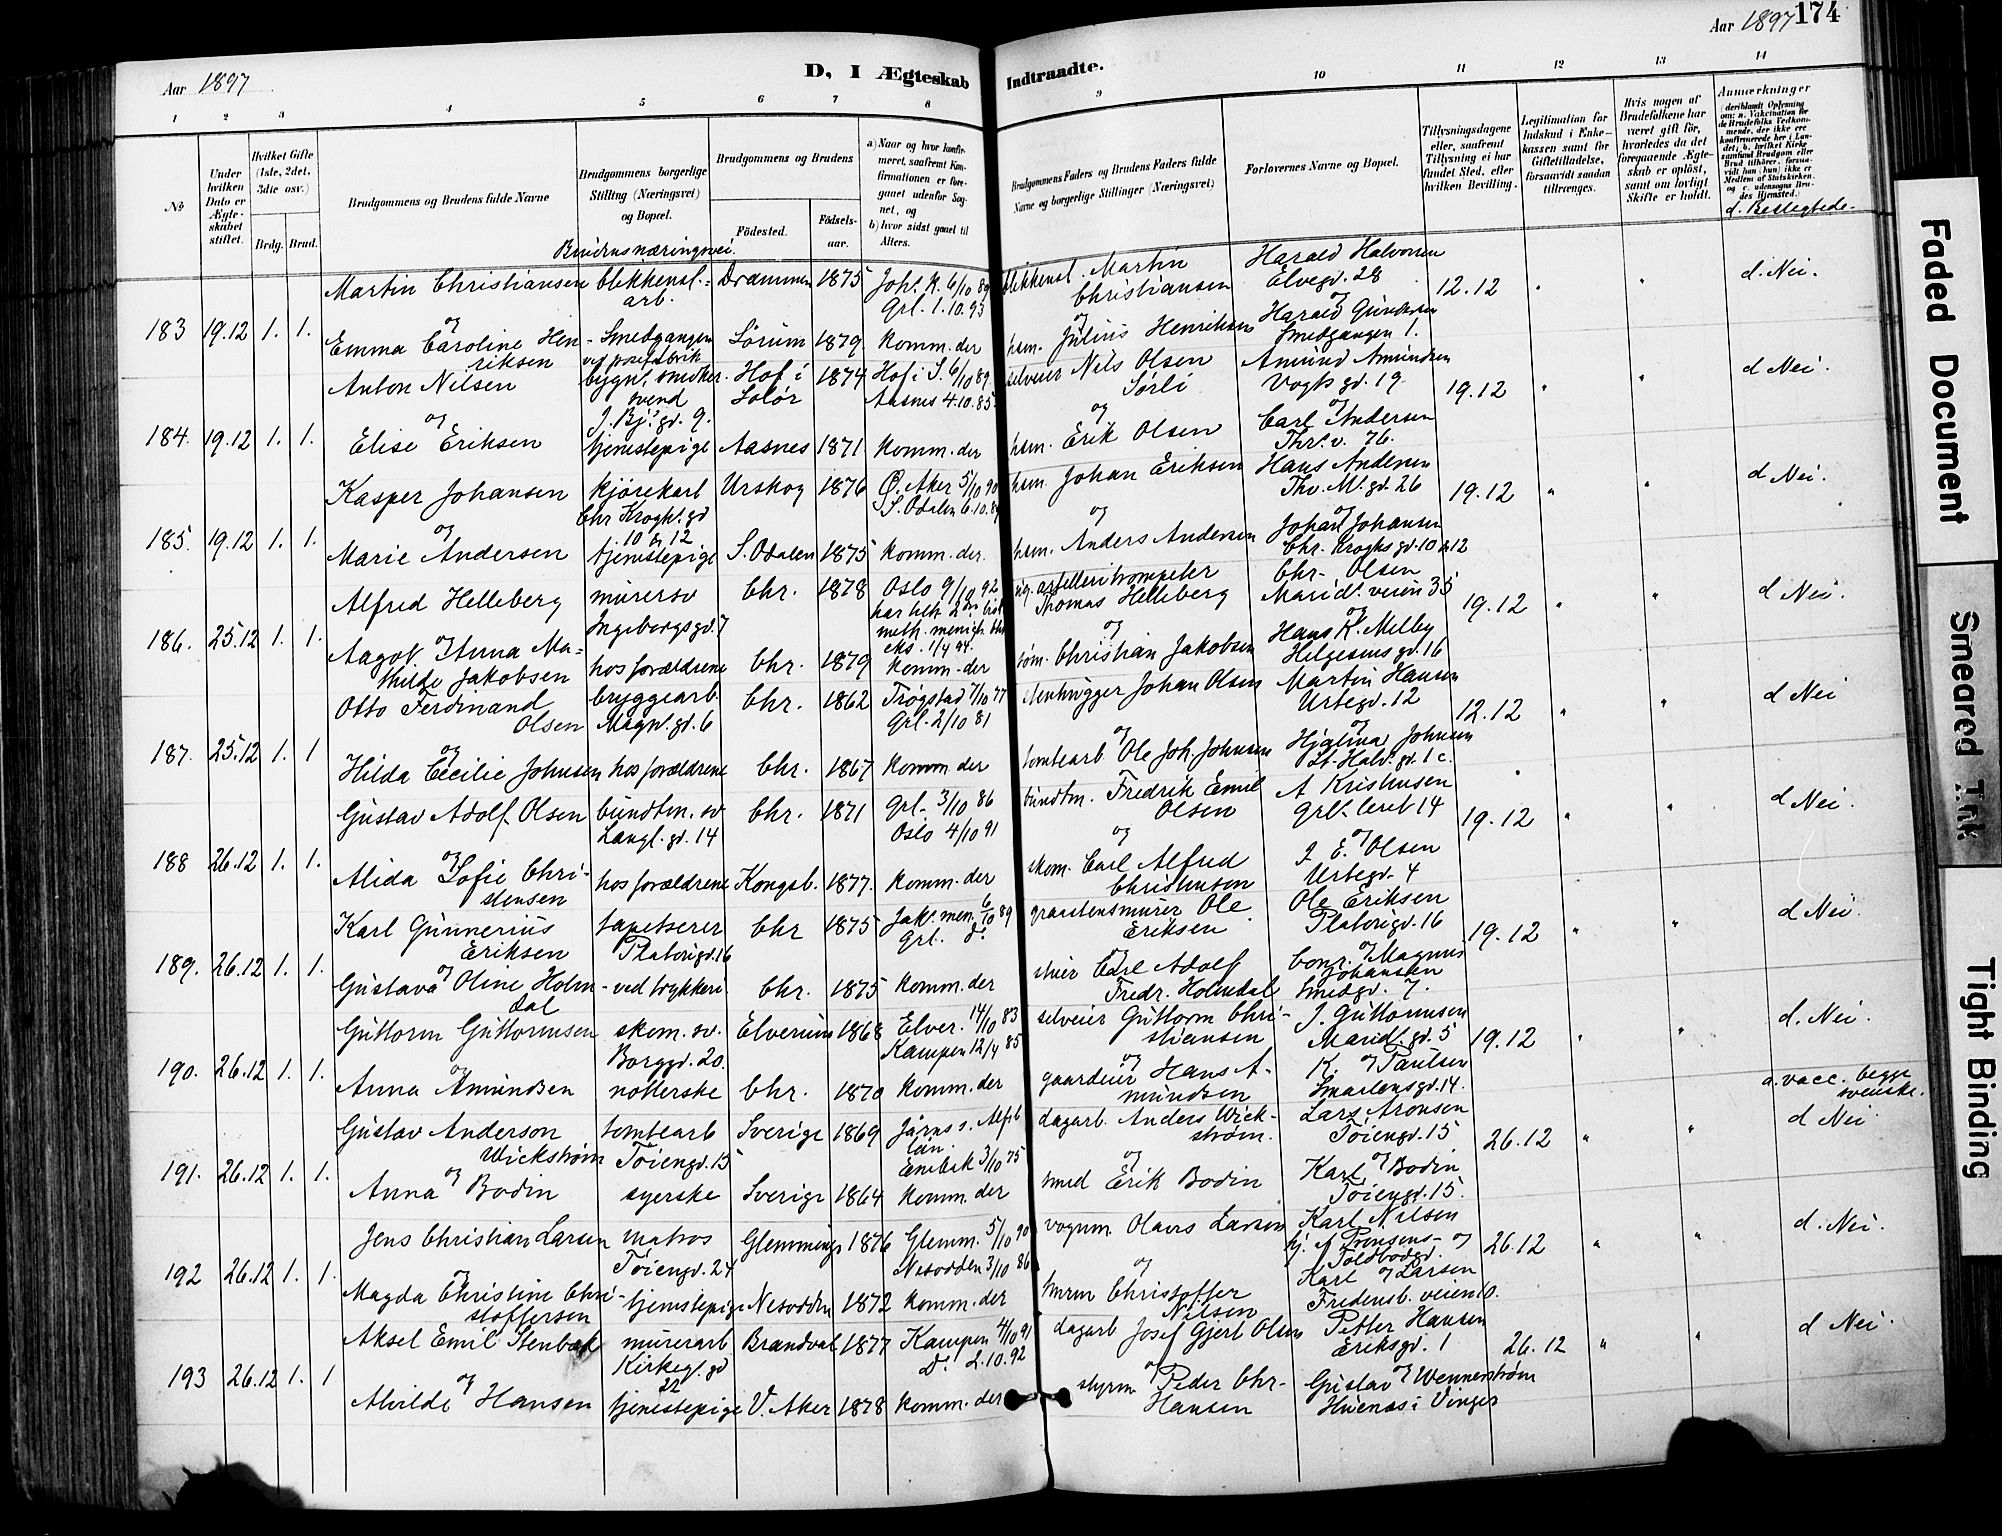 Aar 1897
D, I Ægteskab
Indtraadte.
Aar 1897 174
1 2 3 4 5 6 7 8 9 10 11 12 13 14
№
Under hvilken Dato er Ægteskabet stiftet.
Hvilket Gifte (1ste, 2det, 3die osv.)
Brdg. Brud.
Brudgommens og Brudens fulde Navne
Brudgommens borgerlige Stilling (Næringsvei) og Bopæl.
Brudgommens og Brudens
Födested.
Födsels-aar.
a) Naar og hvor konfirmeret, saafremt Konfirmationen er foregaaet udenfor Sognet, og
b) hvor sidst gaaet til Alters.
Brudgommens Faders og Brudens Faders fulde Navne og borgerlige Stillinger (Næringsvei)
Forlovernes Navne og Bopæl.
Tillysningsdagene eller, saafremt Tillysning ei har fundet Sted, efter hvilken Bevilling.
Legitimation for Indskud i Enkekassen samt for Giftetilladelse, forsaavidt saadan tiltrænges.
Hvis nogen af Brudefolkene har været gift før, hvorledes da det foregaaende Ægteskab er opløst, samt om lovligt Skifte er holdt.
Anmærkninger
d. Beslegtede.
Brudens næringsvei.
Martin Christiansen blikkensl. arb. Drammen 1875 Joh. k. 6/10 89 Grl. 1.10.93 blikkensl. Martin Christiansen Harald Halvorsen Elvegd. 28 12.12 " " d. Nei.
183 19.12 1. 1. og
Emma Caroline Henriksen Smedgangen ved posefabrik Sørum 1879 komm. der hsm. Julius Henriksen og Harald Gundersen Smedgangen 1.
Anton Nilsen bygn. snedker svend J. Bj. gd. 9. Hof i Solør 1874 Hof i S. 6/10 89 Aasnes 4.10.85 selveier Nils Olsen Sørli Amund Amundsen Vogts gd. 19. 19.12 " " d Nei.
184. 19.12 1. 1. og
Elise Eriksen tjenestepige Aasnes 1871 komm. der hsm. Erik Olsen og Carl Andersen Thr. v. 76.
Kasper Johansen kjørekarl Chr Krogh. gd 10 & 12 Urskog 1876 Ø. Aker 5/10 90 S. Odalen 6.10.89 hsm. Johan Eriksen Hans Andersen Thv. M. gd. 26 19.12 " " d Nei.
185. 19.12 1. 1. og
Marie Andersen tjenestepige S. Odalen 1875 komm. der. hsm. Anders Andersen og Johan Johansen Chr. Kroghs gd. 10 & 12
Alfred Helleberg murersv Ingeborgs gd. 7 Chr. 1878 Oslo 9/10 92 artelleritrompeter Thomas Helleberg Chr. Olsen Marid. veien 35 19.12 " " d Nei.
186. 25.12 1. 1. og
Aagot Anna Mathilde Jakobsen hos forældrene Chr. 1879 komm. der søm. Christian Jakobsen og Hans K. Melby Helgesens gd. 16
Otto Ferdinand Olsen bryggearb. Magn. gd. 6 Chr. 1862 Trøgstad 7/10 77 Grl. 2/10 81 stenhugger Johan Olsen Martin Hansen Urtegd. 12 12.12 " " d Nei
187. 25.12 1. 1 og
Hilda Cecilie Johnsen hos forældrene Chr. 1867 komm der tomtearb. Ole Joh. Johnsen og Hjalmar Johnsen St. Halv. gd. 1 c.
Gustav Adolf Olsen bundtm. sv Langl. gd. 14 Chr. 1871 Grl. 3/10 86 Oslo 4/10 91 bundtm. Fredrik Emil Olsen A Kristensen Grl. leret 14 19.12 " " d Nei.
188 26.12 1. 1. og
Alida Sofie Christensen hos forældrene Kongsb. 1877. komm. der skom. Carl Alfred Christensen og J. E. Olsen Urtegd. 4
Karl Gunnerius Eriksen tapetserer Platousgd. 16 Chr 1875 Jak. men. 6/10 89 Grl. do. graastensmurer Ole Eriksen Ole Eriksen Platousgd. 16 19.12 " " d Nei.
189. 26.12 1. 1. og
Gustava Oline Holmdal ved trykkeri Chr. 1875 komm. der Carl Adolf Fredr. Holmdal og Conr. Magnus Johansen Smedgd. 7.
Guttorm Guttormsen skom. sv. Borggd. 20. Elverum 1868 Elver. 14/10 83 Kampen 12/4 85 selveier Guttorm Christiansen J. Guttormsen Marid. gd. 5 19.12 " " d. Nei.
190. 26.12 1. 1. og
Anna Amundsen notterske Chr. 1870 komm. der gaardeier Hans Amundsen og K. Paulsen Smalensgd. 14.
Gustav Anderson Wickstrøm tomtearb Tøiengd. 15 Sverige 1869 Järns s. län Enebak 3/10 75 dagarb. Anders Wickstrøm. Lars Aronsen Tøiengd. 15 26.12 " " a. vacc. begge svenske. d Nei
191. 26.12 1. 1. og
Anna Bodin syerske Sverige 1864 komm. der smed Erik Bodin og Karl Bodin Tøiengd. 15.
Jens Christian Larsen matros Tøiengd. 24 Glemminge 1876 Glemm. 5/10 90 Nesodden 3/10 86 vognm. Olaves Larsen Karl Nilsen hj. af Prinsens- og Toldbodgd. 26.12 " " d. Nei.
192 26.12 1. 1. og
Magda Christine Christoffersen tjenestepige Nesodden 1872 komm. der tmrm Christoffer Nilsen og Karl Larsen Fredensb. veien 10.
Aksel Emil Stenbæk murerarb Kirkeg. gd 22 Brandval 1877 Kampen 4/10 91 do. 2.10.92 dagarb Josef Gjert Olsen Petter Hansen Eriksgd. 1 26.12 " " d Nei.
193 26.12 1. 1 og
Alvilde Hansen tjenestepige V. Aker 1878 komm. der styrm Peder Chr. Hansen og Gustav Wennerstrøm Huenæs i Vinger
Faded Document
Smeared Ink
Tight Binding